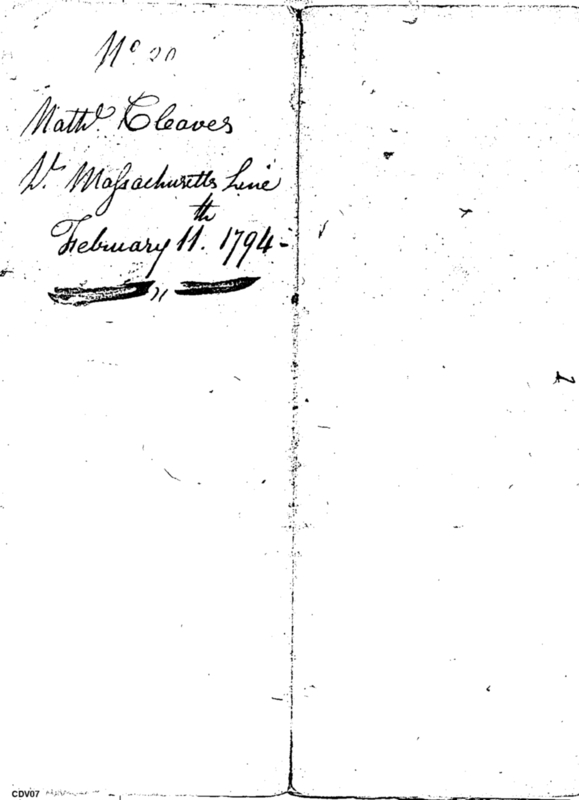 No 20
Nathl. Cleaves
Massachusetts Line
February 11.th 1794 -
CDV07